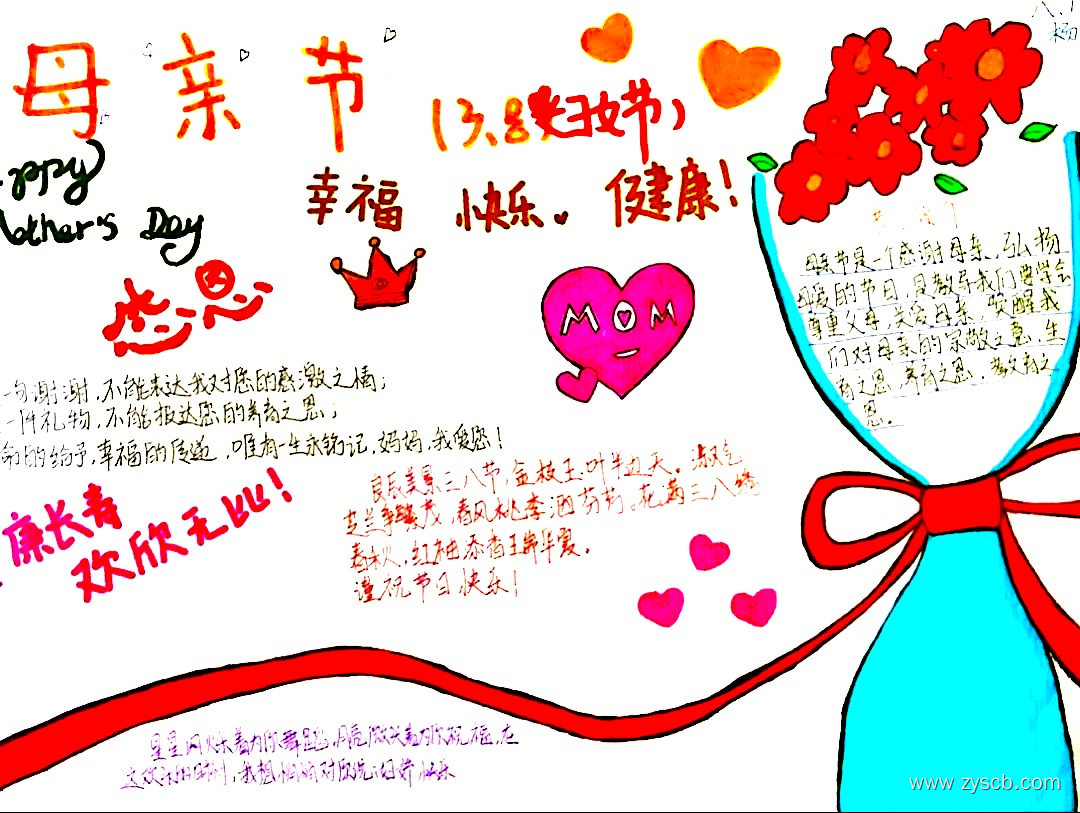 母亲节
(3.8妇女节)
Happy
Mother's Day
幸福 快乐。健康!
感恩
MOM
母亲节是一个感谢母亲,弘扬
母爱的节日,是教导我们要学会
尊重父母,关爱母亲,唤醒我
们对母亲的崇敬之意,生
育之恩,养育之恩,教育之
恩。
一句谢谢,不能表达我对您的感激之情;
一件礼物,不能报达您的养育之恩;
命的给予,幸福的传递,唯有一生永铭记,妈妈,我爱您!
康长青
欢欣无比!
良辰美景三八节,金枝玉叶半边天。淑气
芝兰争竣茂,春风桃李洒芬芳。花满三八绣
春秋,红袖添香
谨祝节日快乐!
星星闪烁着为你舞蹈,月亮微笑着为你祝福,在
这欢乐的时刻,我想悄悄对你说:节日快乐
www.zyscb.com